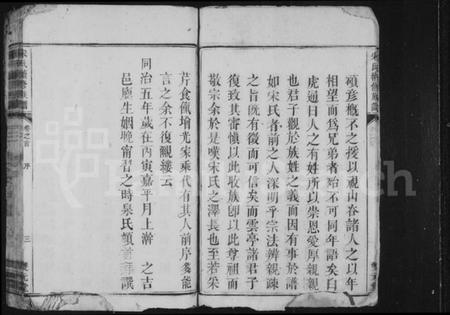 碩彥概不之援以視山吞諸人之以年
相望而爲兄弟者殆不可同年語矣白
虎通曰人之有姓所以崇恩愛厚親親
也君子觀於族姓之義而因有事於譜
如宋氏者前之人深明乎宗法辨親疎
之旨旣有徵而可信矣而雲亭諸君子
復致其審愼以此收族卽以此尊祖而
敬宗余於是嘆宋氏之澤長也至若采
芹食餼增光家乘代有其人前序多能
言之余不復覼縷云
同治五年歲在丙寅嘉平月上澣 之吉
邑庠生姻晚甯者之時泉氏頓首謹譔
卷之首 序 三